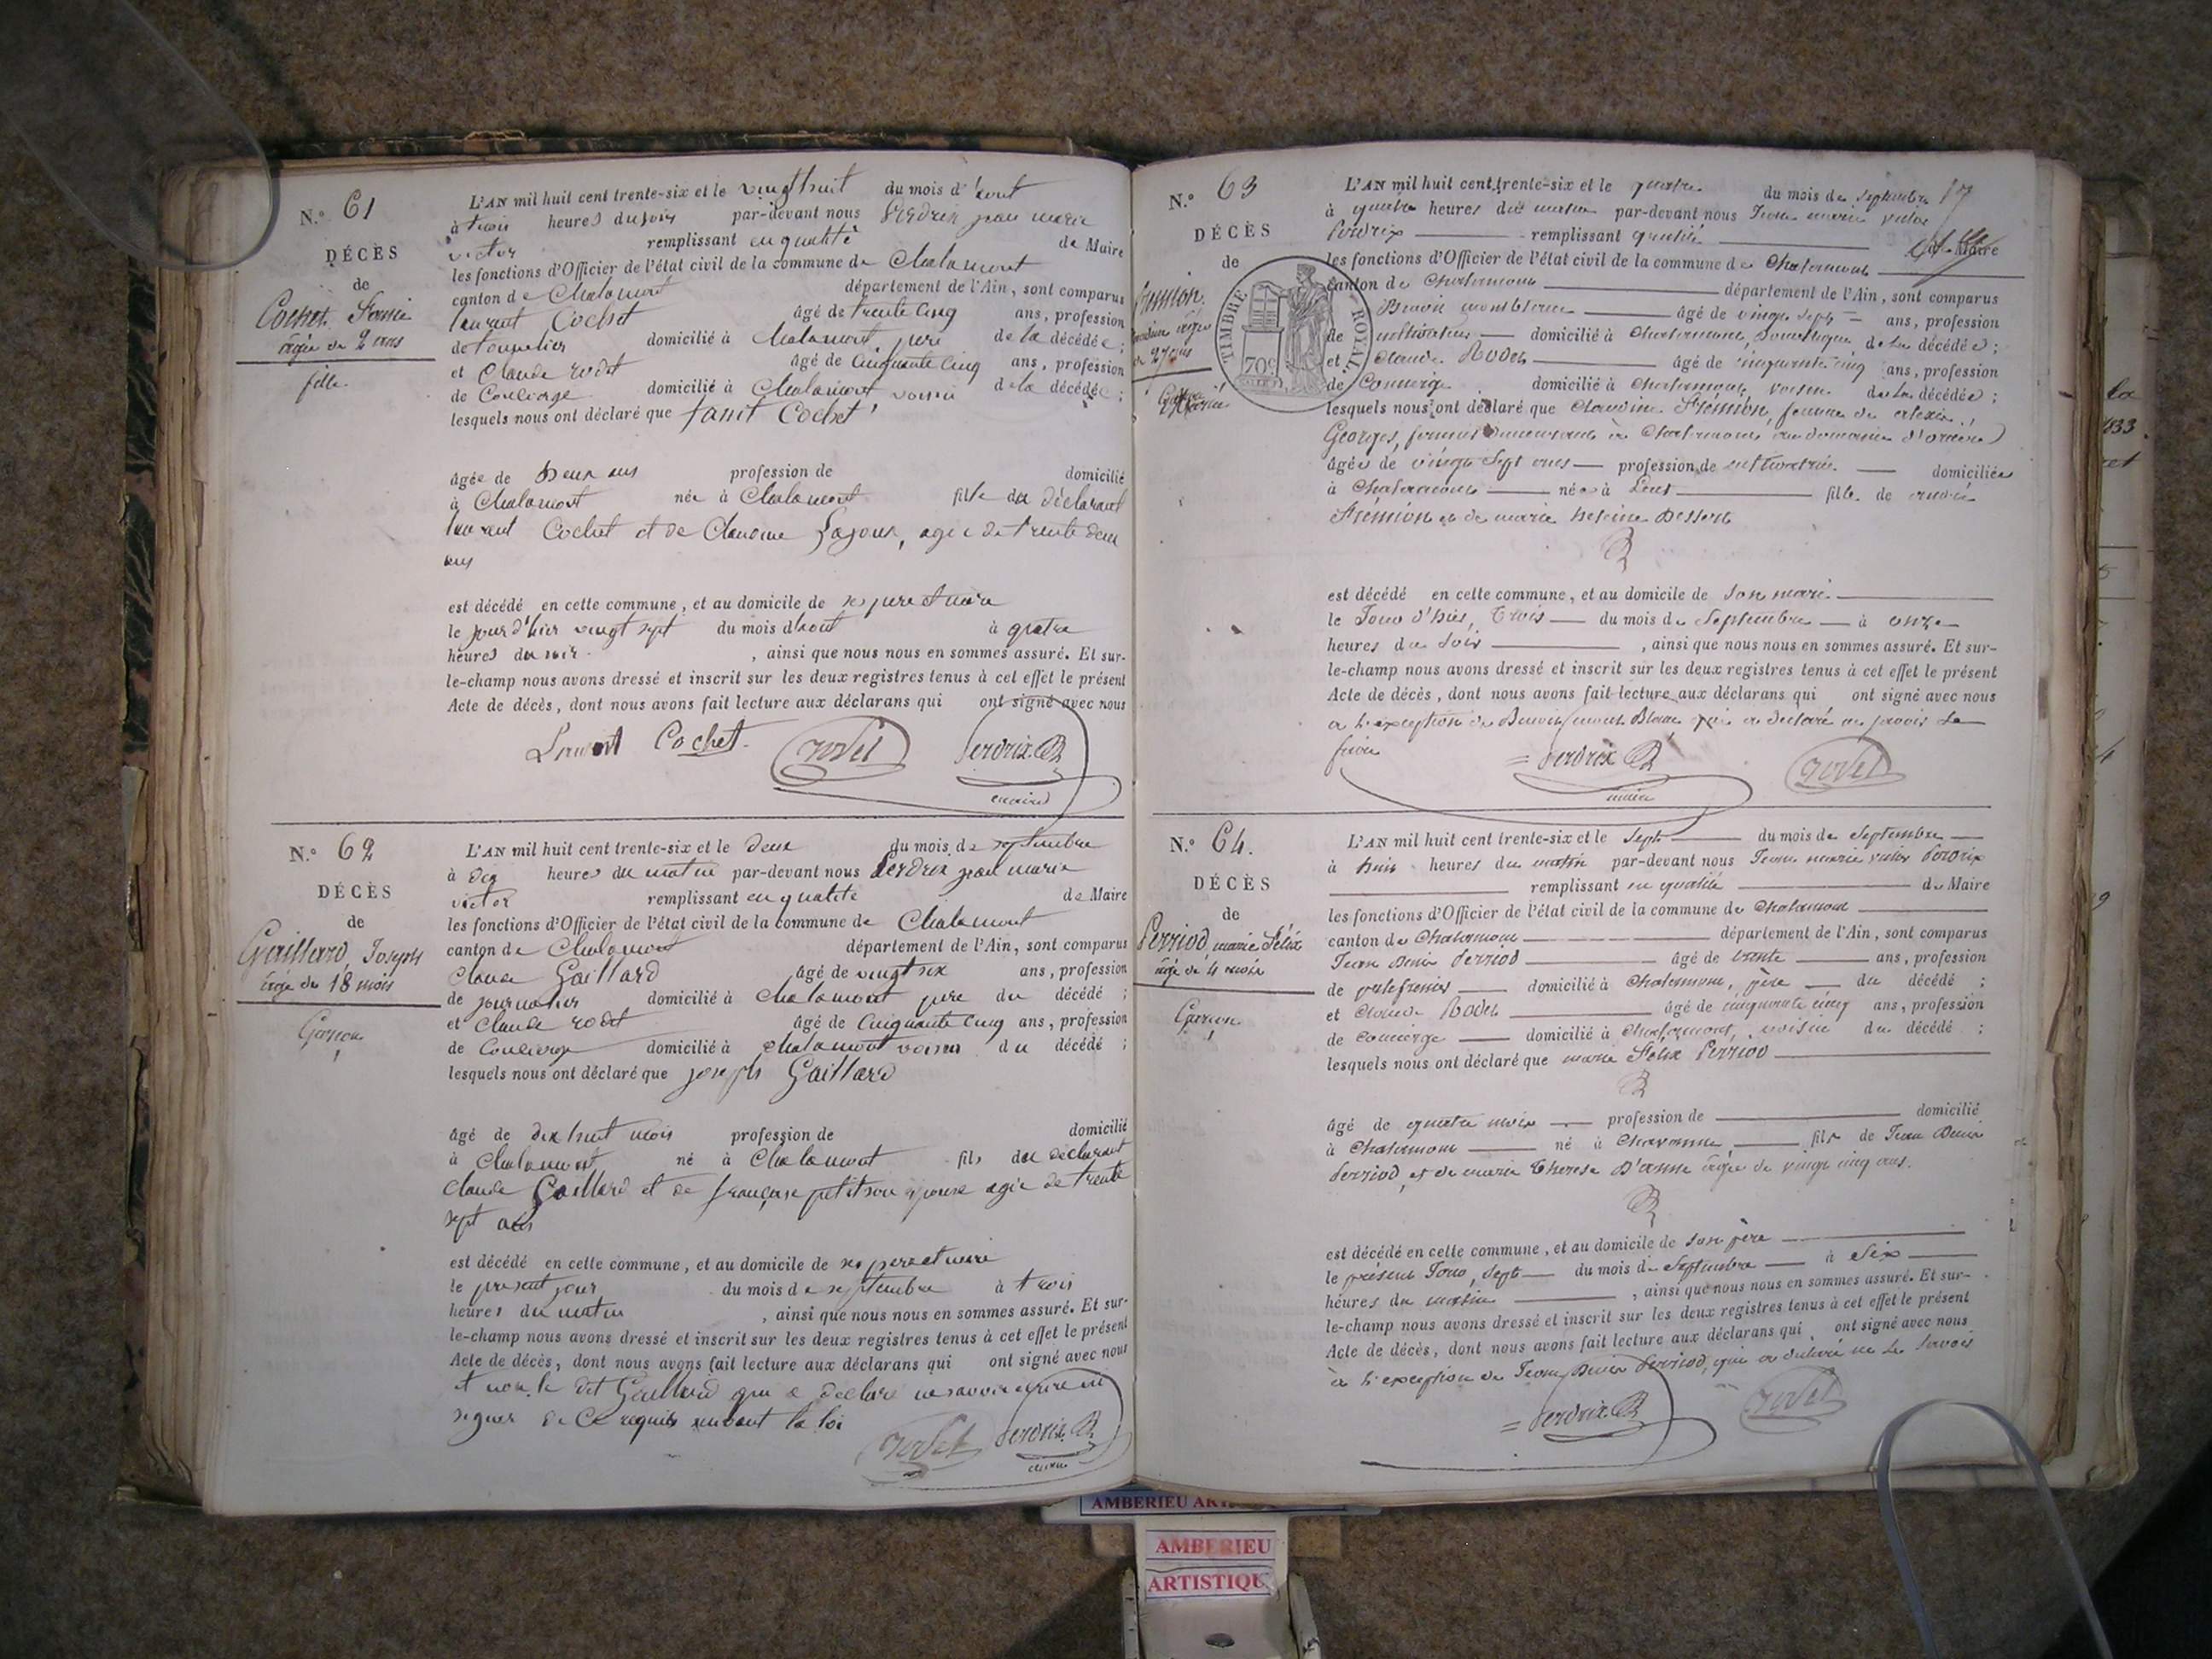 N.° 61
DÉCÈS
de
Cochet Fanie
âgée de 2 ans
fille
L'AN mil huit cent trente-six et le vingt huit du mois d'aout
à trois heures du soir par-devant nous Perdrix jean marie
victor remplissant en qualité de Maire
les fonctions d'Officier de l'état civil de la commune de Chalamont
canton de Chalamont département de l'Ain, sont comparus
laurent Cochet âgé de trente cinq ans, profession
de tonnelier domicilié à Chalamont, pere de la décédée;
et Claude rodet âgé de Cinquante Cinq ans, profession
de Concierge domicilié à Chalamont voisin de la décédée;
lesquels nous ont déclaré que fanit Cochet
âgée de Deux ans profession de domicilié
à Chalamont née à Chalamont fille du déclarant
laurent Cochet et de Claudine Lajoux, agée de trente deux
ans
est décédé en cette commune, et au domicile de ses pere et mère
le jour d'hier vingt sept du mois d'aout à quatre
heures du soir, ainsi que nous nous en sommes assuré. Et sur-
le-champ nous avons dressé et inscrit sur les deux registres tenus à cet effet le présent
Acte de décès, dont nous avons fait lecture aux déclarans qui ont signé avec nous
Laurent Cochet rodet Perdrix
maire
N.° 62
DÉCÈS
de
Gaillard, Joseph
âgé de 18 mois
Garçon
L'AN mil huit cent trente-six et le deux du mois de septembre
à dix heures du matin par-devant nous Perdrix jean marie
victor remplissant en qualité de Maire
les fonctions d'Officier de l'état civil de la commune de Chalamont
canton de Chalamont département de l'Ain, sont comparus
Claude Gaillard âgé de vingt six ans, profession
de journalier domicilié à Chalamont pere du décédé;
et Claude rodet âgé de Cinquante Cinq ans, profession
de Concierge domicilié à Chalamont voisin du décédé;
lesquels nous ont déclaré que joseph Gaillard
âgé de dix huit mois profession de domicilié
à Chalamont né à Chalamont fils du déclarant
Claude Gaillard et de françoise petit son épouse agée de trente
sept ans
est décédé en cette commune, et au domicile de ses pere et mère
le présent jour du mois de septembre à trois
heures du matin, ainsi que nous nous en sommes assuré. Et sur-
le-champ nous avons dressé et inscrit sur les deux registres tenus à cet effet le présent
Acte de décès, dont nous avons fait lecture aux déclarans qui ont signé avec nous
et non le dit Gaillard qui a déclaré ne savoir écrire ni
signer de Ce requis suivant la loi
rodet Perdrix
maire
17
N.° 63
DÉCÈS
de
Frémion
Claudine âgée
de 27 ans
TIMBRE ROYAL
70c
L'AN mil huit cent trente-six et le quatre du mois de Septembre
à quatre heures du matin par-devant nous Jean marie victor
Perdrix remplissant qualité de Maire
les fonctions d'Officier de l'état civil de la commune de Chalamont
canton de Chalamont département de l'Ain, sont comparus
Benoit montblanc âgé de vingt sept ans, profession
de cultivateur domicilié à Chalamont, domestique de la décédée;
et Claude Rodet âgé de cinquante cinq ans, profession
de Concierge domicilié à Chalamont, voisin de la décédée;
lesquels nous ont déclaré que Claudine Frémion, femme de alexis
Georges, fermier demeurant à Chalamont au domaine
âgée de vingt Sept ans profession de cultivatrice domiciliée
à Chalamont née à Lent fille de andré
Frémion et de marie
est décédé en cette commune, et au domicile de son mari
le Jour d'hier, Trois du mois de Septembre à onze
heures du Soir, ainsi que nous nous en sommes assuré. Et sur-
le-champ nous avons dressé et inscrit sur les deux registres tenus à cet effet le présent
Acte de décès, dont nous avons fait lecture aux déclarans qui ont signé avec nous
à l'exception de Benoit mont Blanc, qui a déclaré ne savoir le
faire
Perdrix rodet
maire
N.° 64.
DÉCÈS
de
Perriod, marie Félix
âgé de 4 mois
Garçon
L'AN mil huit cent trente-six et le Sept du mois de Septembre
à huit heures du matin par-devant nous Jean marie victor Perdrix
remplissant en qualité de Maire
les fonctions d'Officier de l'état civil de la commune de Chalamont
canton de Chalamont département de l'Ain, sont comparus
Jean Denis Perriod âgé de trente ans, profession
de palefrenier domicilié à Chalamont, père du décédé;
et Claude Rodet âgé de cinquante cinq ans, profession
de Concierge domicilié à Chalamont, voisin du décédé;
lesquels nous ont déclaré que marie Félix Perriod
âgé de quatre mois profession de domicilié
à Chalamont né à fils de Jean Denis
Perriod, et de marie Therese D'anne âgée de vingt cinq ans.
est décédé en cette commune, et au domicile de son père
le présent Jour, Sept du mois de Septembre à Six
heures du matin, ainsi que nous nous en sommes assuré. Et sur-
le-champ nous avons dressé et inscrit sur les deux registres tenus à cet effet le présent
Acte de décès, dont nous avons fait lecture aux déclarans qui ont signé avec nous
à l'exception de Jean Denis Perriod, qui a déclaré ne le savoir
Perdrix rodet
AMBERIEU
AMBERIEU
ARTISTIQU